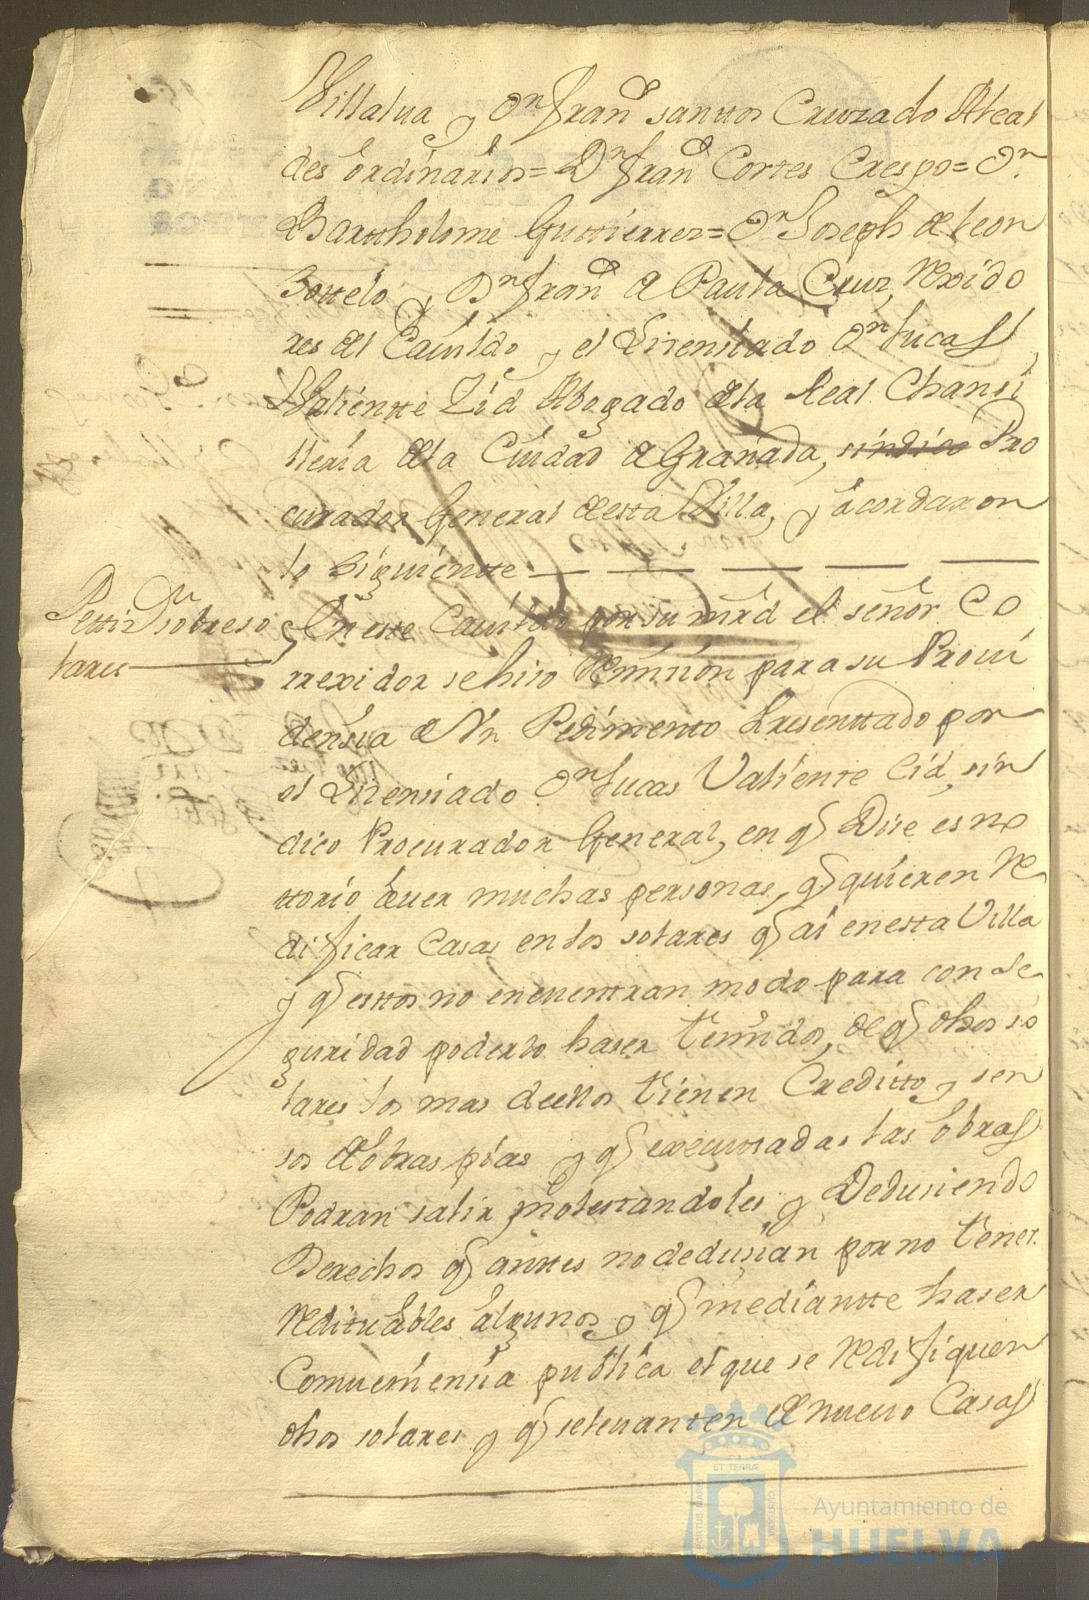 Villalva, y Dn Franco santtos Cruzado Alcal
des ordinarios= Dn Franco Cortes Crespo= Dn
Barttholome Guttierrez= Dn Joseph de leon
Sottelo, y Dn Franco de Paula Cruz, Rexido
res del Cavildo, y el Lisensiado Dn Lucas
Valientte Zid Abogado dela Real Chansi
lleria dela Ciudad de Granada, sindico Pro
curador General de esta Villa, y acordaron
lo siguientte
Pettizon sobre so
lares
En este Cavildo por su mrd el señor Co
rrexidor se hiso Remision para su Provi
densia de Vn Pedimento Presenttado por
el Lisensiado Dn Lucas Valiente Cid, sin
dico Procurador General, en q Dise es no
ttorio aver muchas personas, q quieren Re
dificar Casas en los solares q ai en esta Villa
y q esttos no encuentran modo para con se
guridad poderlo haser temidos, de q dhos so
lares los mas de ellos tienen Creditto, y sen
sos de obras pias y q executtadas las obras
Podran salir molestandoles, y Dedusiendo
Derechos q anttes no dedusian por no tener
Redituables algunos, y q mediantte haser
Comveniensia publica el que se Redifiquen
dhos solares, y q se levanten de nuevo Casas
PORTUS MARIS
ET TERRÆ
CUSTODIA
Ayuntamiento de
HUELVA